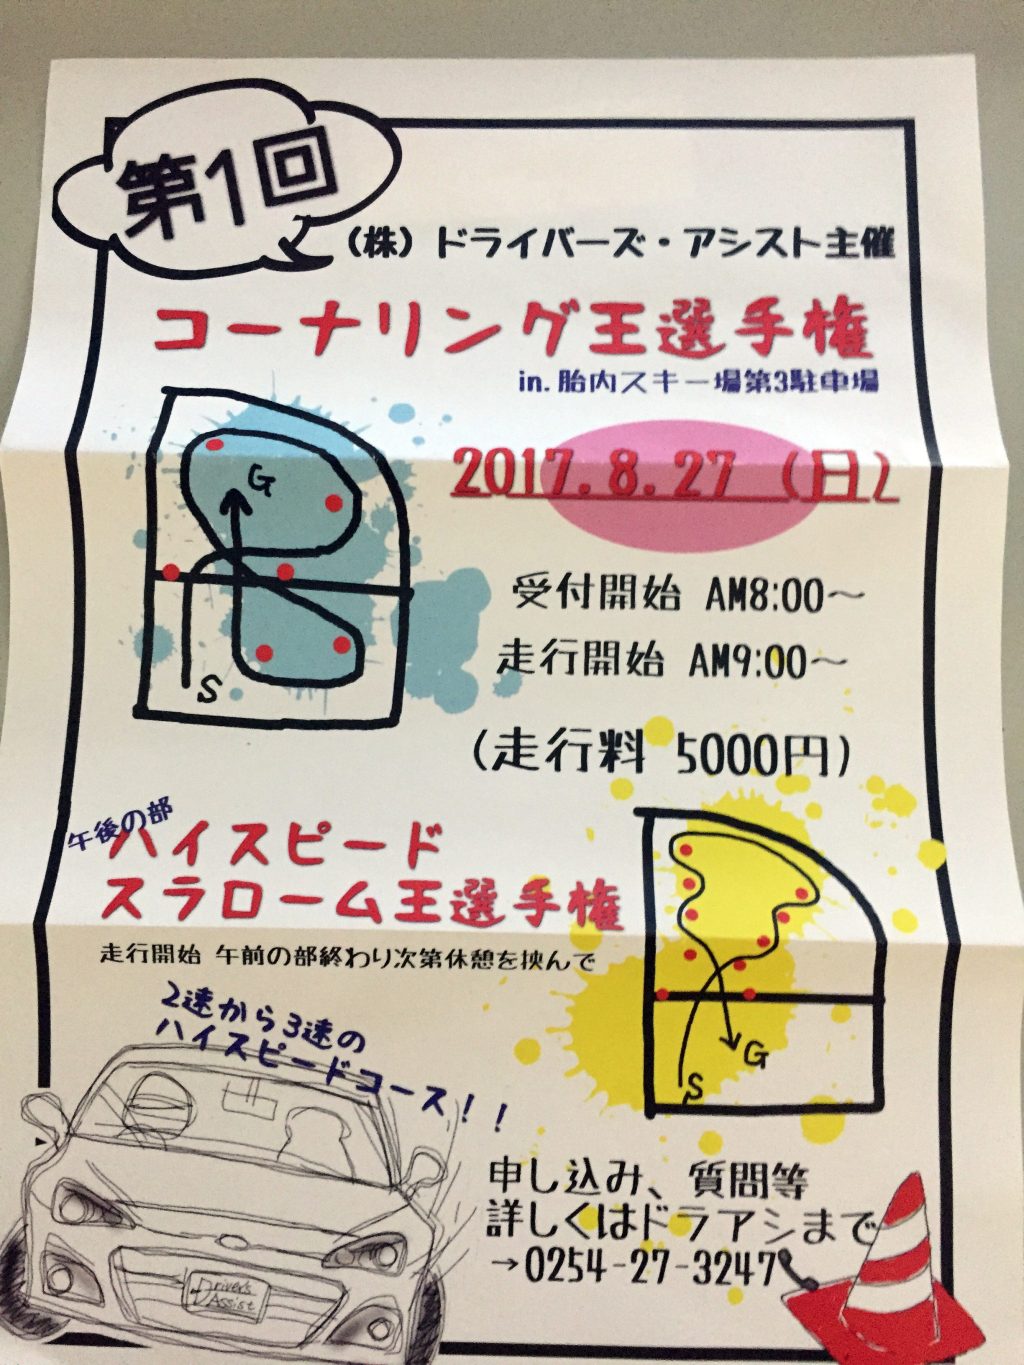 第1回
（株）ドライバーズ・アシスト主催
コーナリング王選手権
in.胎内スキー場第3駐車場
2017.8.27（日）
G
S
受付開始 AM8:00～
走行開始 AM9:00～
（走行料 5000円）
午後の部
ハイスピード
スラローム王選手権
走行開始 午前の部終わり次第休憩を挟んで
2速から3速の
ハイスピードコース！！
G
S
申し込み、質問等
詳しくはドラアシまで
→0254-27-3247
Driver's
Assist